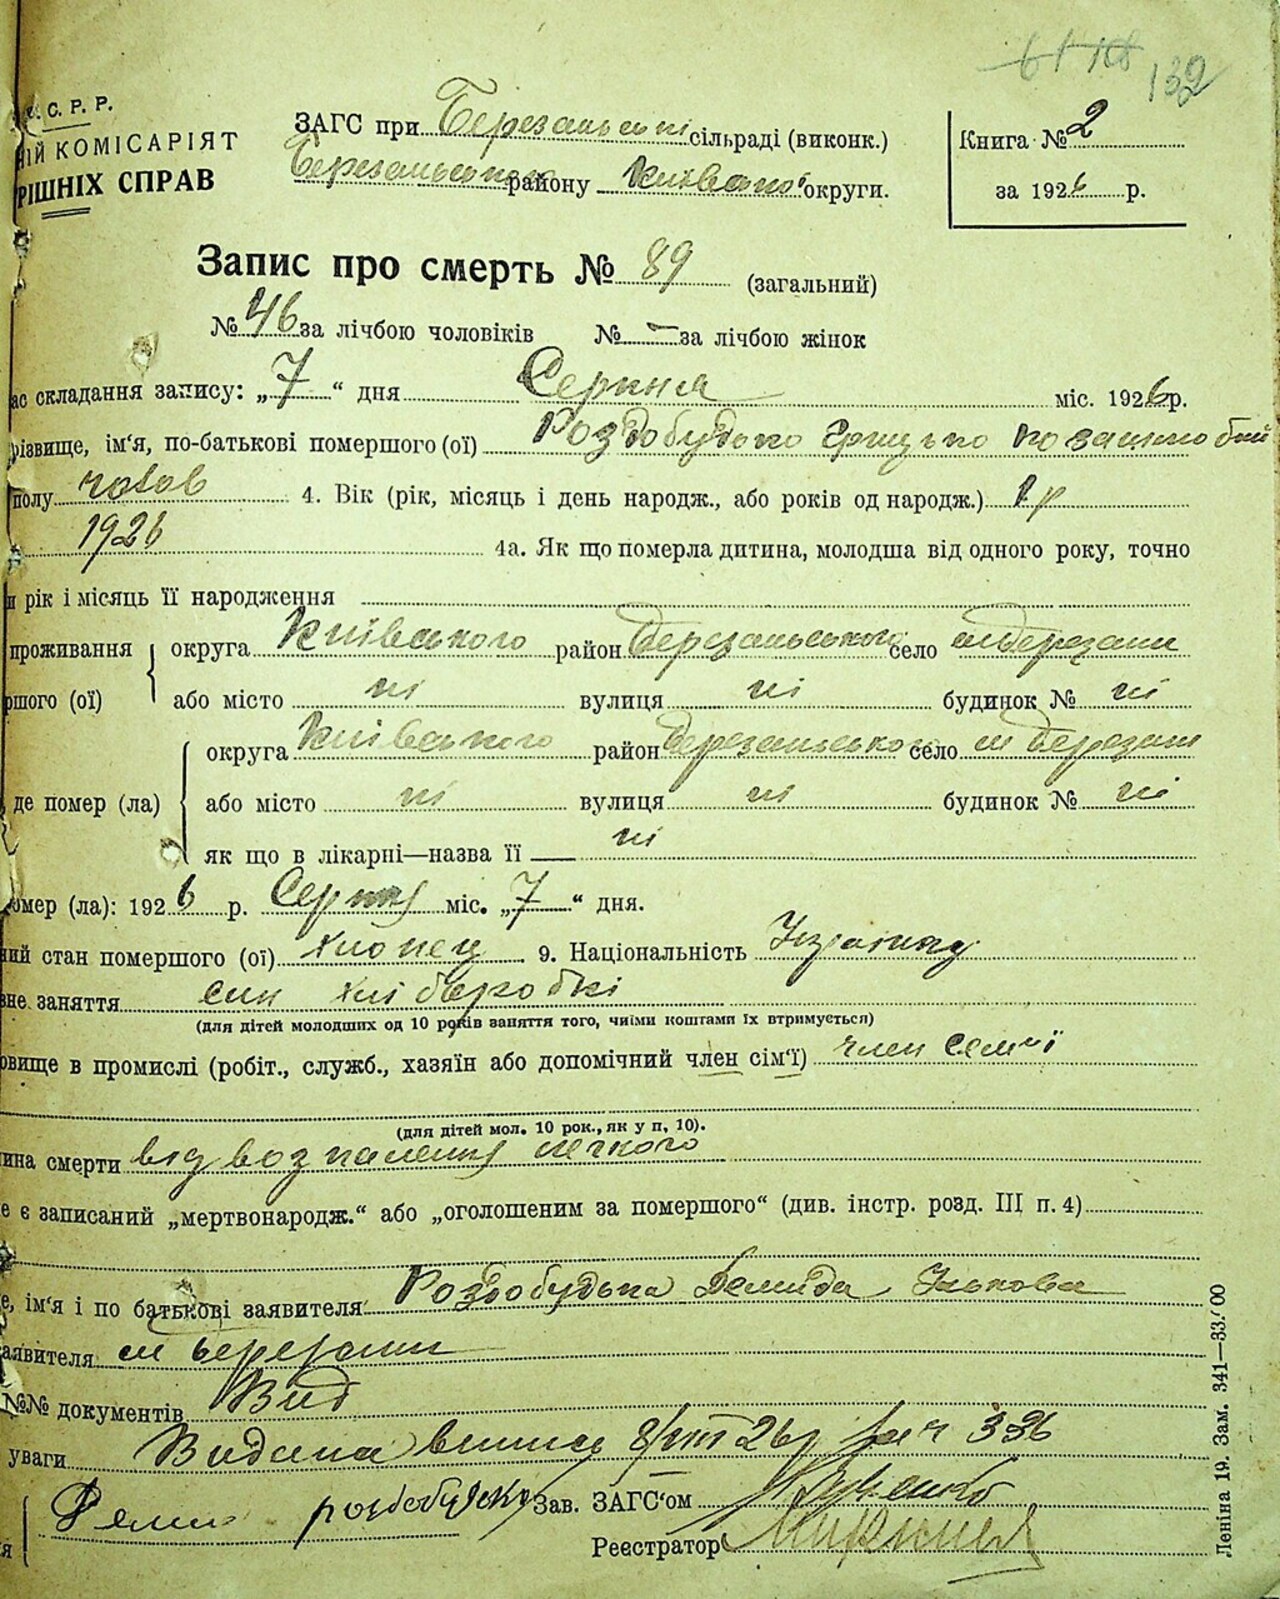 132
С. Р. Р.
ІЙ КОМІСАРІЯТ
РІШНІХ СПРАВ
ЗАГС при Березанські сільраді (виконк.)
Березанського району Київської округи.
Книга № 2
за 1926 р.
Запис про смерть № 89 (загальний)
№ 46 за лічбою чоловіків № — за лічбою жінок
ас складання запису: „7" дня Серпня міс. 1926 р.
різвище, ім'я, по-батькові помершого (ої) Роздобудько Грицько
полу чолов 4. Вік (рік, місяць і день народж., або років од народж.) 1 р
1926 4а. Як що померла дитина, молодша від одного року, точно
и рік і місяць її народження
проживання округа Київського район Березанського село м Березани
ршого (ої) або місто ні вулиця ні будинок № ні
округа Київського район Березанського село м Березані
де помер (ла) або місто ні вулиця ні будинок № ні
як що в лікарні—назва її ні
омер (ла): 1926 р. Серпня міс. „7" дня.
ний стан помершого (ої) хлопец 9. Національність
вне заняття син хліборобкі
(для дітей молодших од 10 років заняття того, чиїми коштами їх втримується)
овище в промислі (робіт., служб., хазяїн або допомічний член сім'ї) член семї
(для дітей мол. 10 рок., як у п, 10).
ина смерти від возпаления легкого
е є записаний „мертвонародж." або „оголошеним за помершого" (див. інстр. розд. III п. 4)
е, ім'я і по батькові заявителя Роздобудька Демида Ількова
аявителя м Березани
№№ документів Вид
уваги Видана випис 8/VIII 26 р за ч 336
Демид роздобудько Зав. ЗАГС'ом
я Реєстратор
Леніна 19. Зам. 341—33.